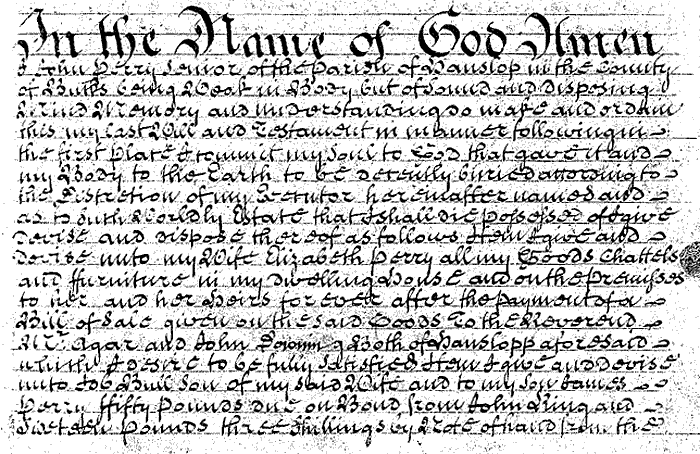 In the Name of God Amen
I John Perry Senior of the Parish of Hanslop in the County
of Bucks being Weak in Body but of Sound and disposing
Mind Memory and Understanding do make and ordain
this my Last Will and Testament in manner following in
the first Place I commit my Soul to God that gave it and
my Body to the Earth to be decently buried according to
the Discretion of my Executor hereinafter named and
as to such Worldly Estate that I shall die possessed of I give
devise and dispose thereof as follows Item I give and
devise unto my Wife Elizabeth Perry all my Goods Chattels
and ffurniture in my dwelling House and on the Premisses
to her and her Heirs for ever after the payment of a
Bill of Sale given on the said Goods To the Reverend
Mr. Agar and John Both of Hanslopp aforesaid
which I desire to be fully satisfied Item I give and Devise
unto Job Bull Son of my said Wife and to my Son James
Perry ffifty Pounds due on Bond from John King and
Sixteen Pounds three Shillings by Note of hand from the